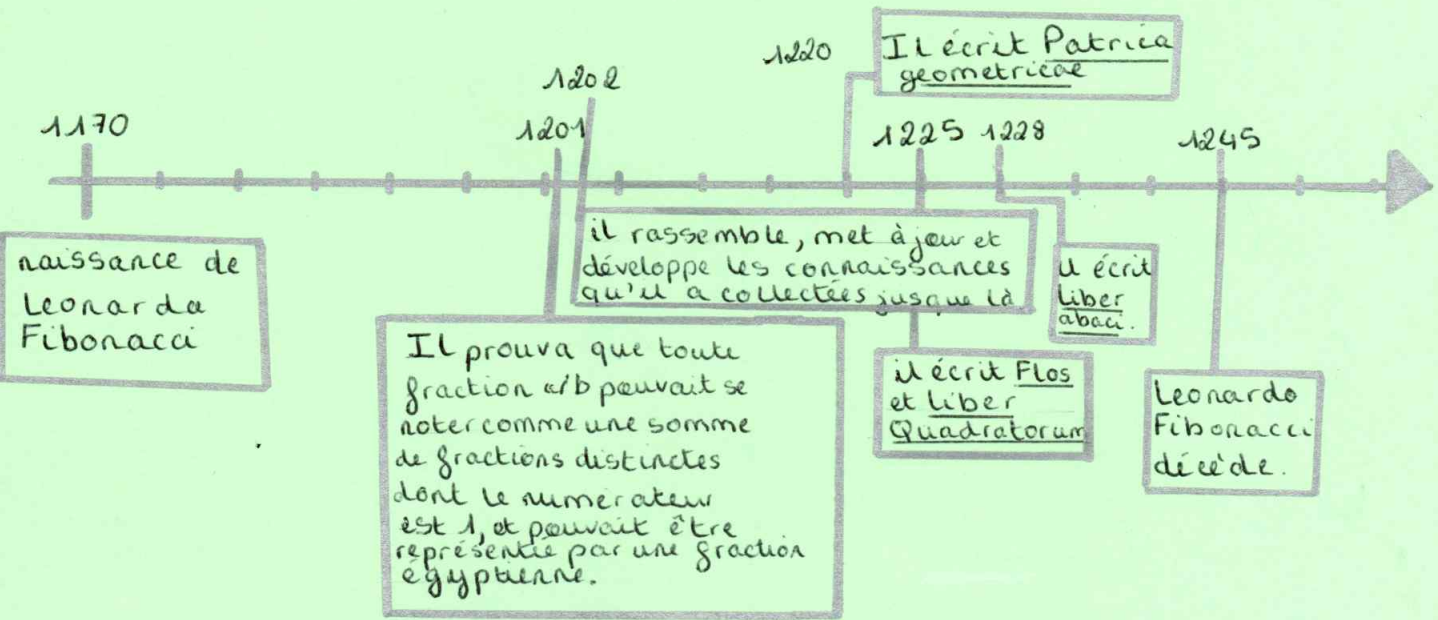 1170
naissance de
Leonardo
Fibonacci
1201
Il prouva que toute
fraction a/b pouvait se
noter comme une somme
de fractions distinctes
dont le numérateur
est 1, et pouvait être
représentée par une fraction
égyptienne.
1202
il rassemble, met à jour et
développe les connaissances
qu'il a collectées jusque là
1220
Il écrit Patrica
geometricae
1225
il écrit Flos
et Liber
Quadratorum
1228
il écrit
liber
abaci.
1245
Leonardo
Fibonacci
décède.